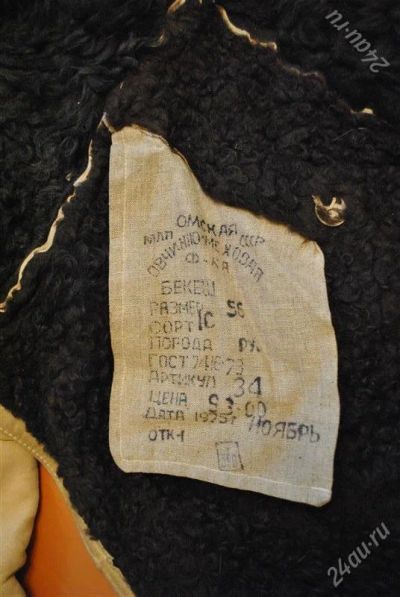 24au.ru
ОМСКАЯ
МЛП РСФСР
ОВЧИННО-МЕХОВАЯ
Ф-КА
БЕКЕШ
РАЗМЕР 56
СОРТ 1С
ПОРОДА РУ
ГОСТ 7416-73
АРТИКУЛ 34
ЦЕНА 93-00
ДАТА 1975г НОЯБРЬ
ОТК-1
24au.ru